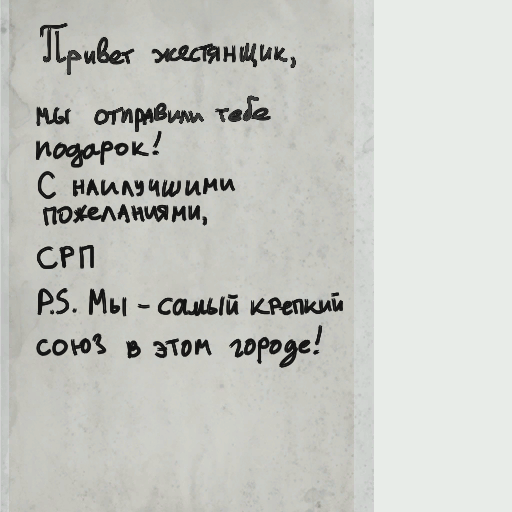 Привет жестянщик,
мы отправили тебе
подарок!
С наилучшими
пожеланиями,
СРП
P.S. Мы - самый крепкий
союз в этом городе!